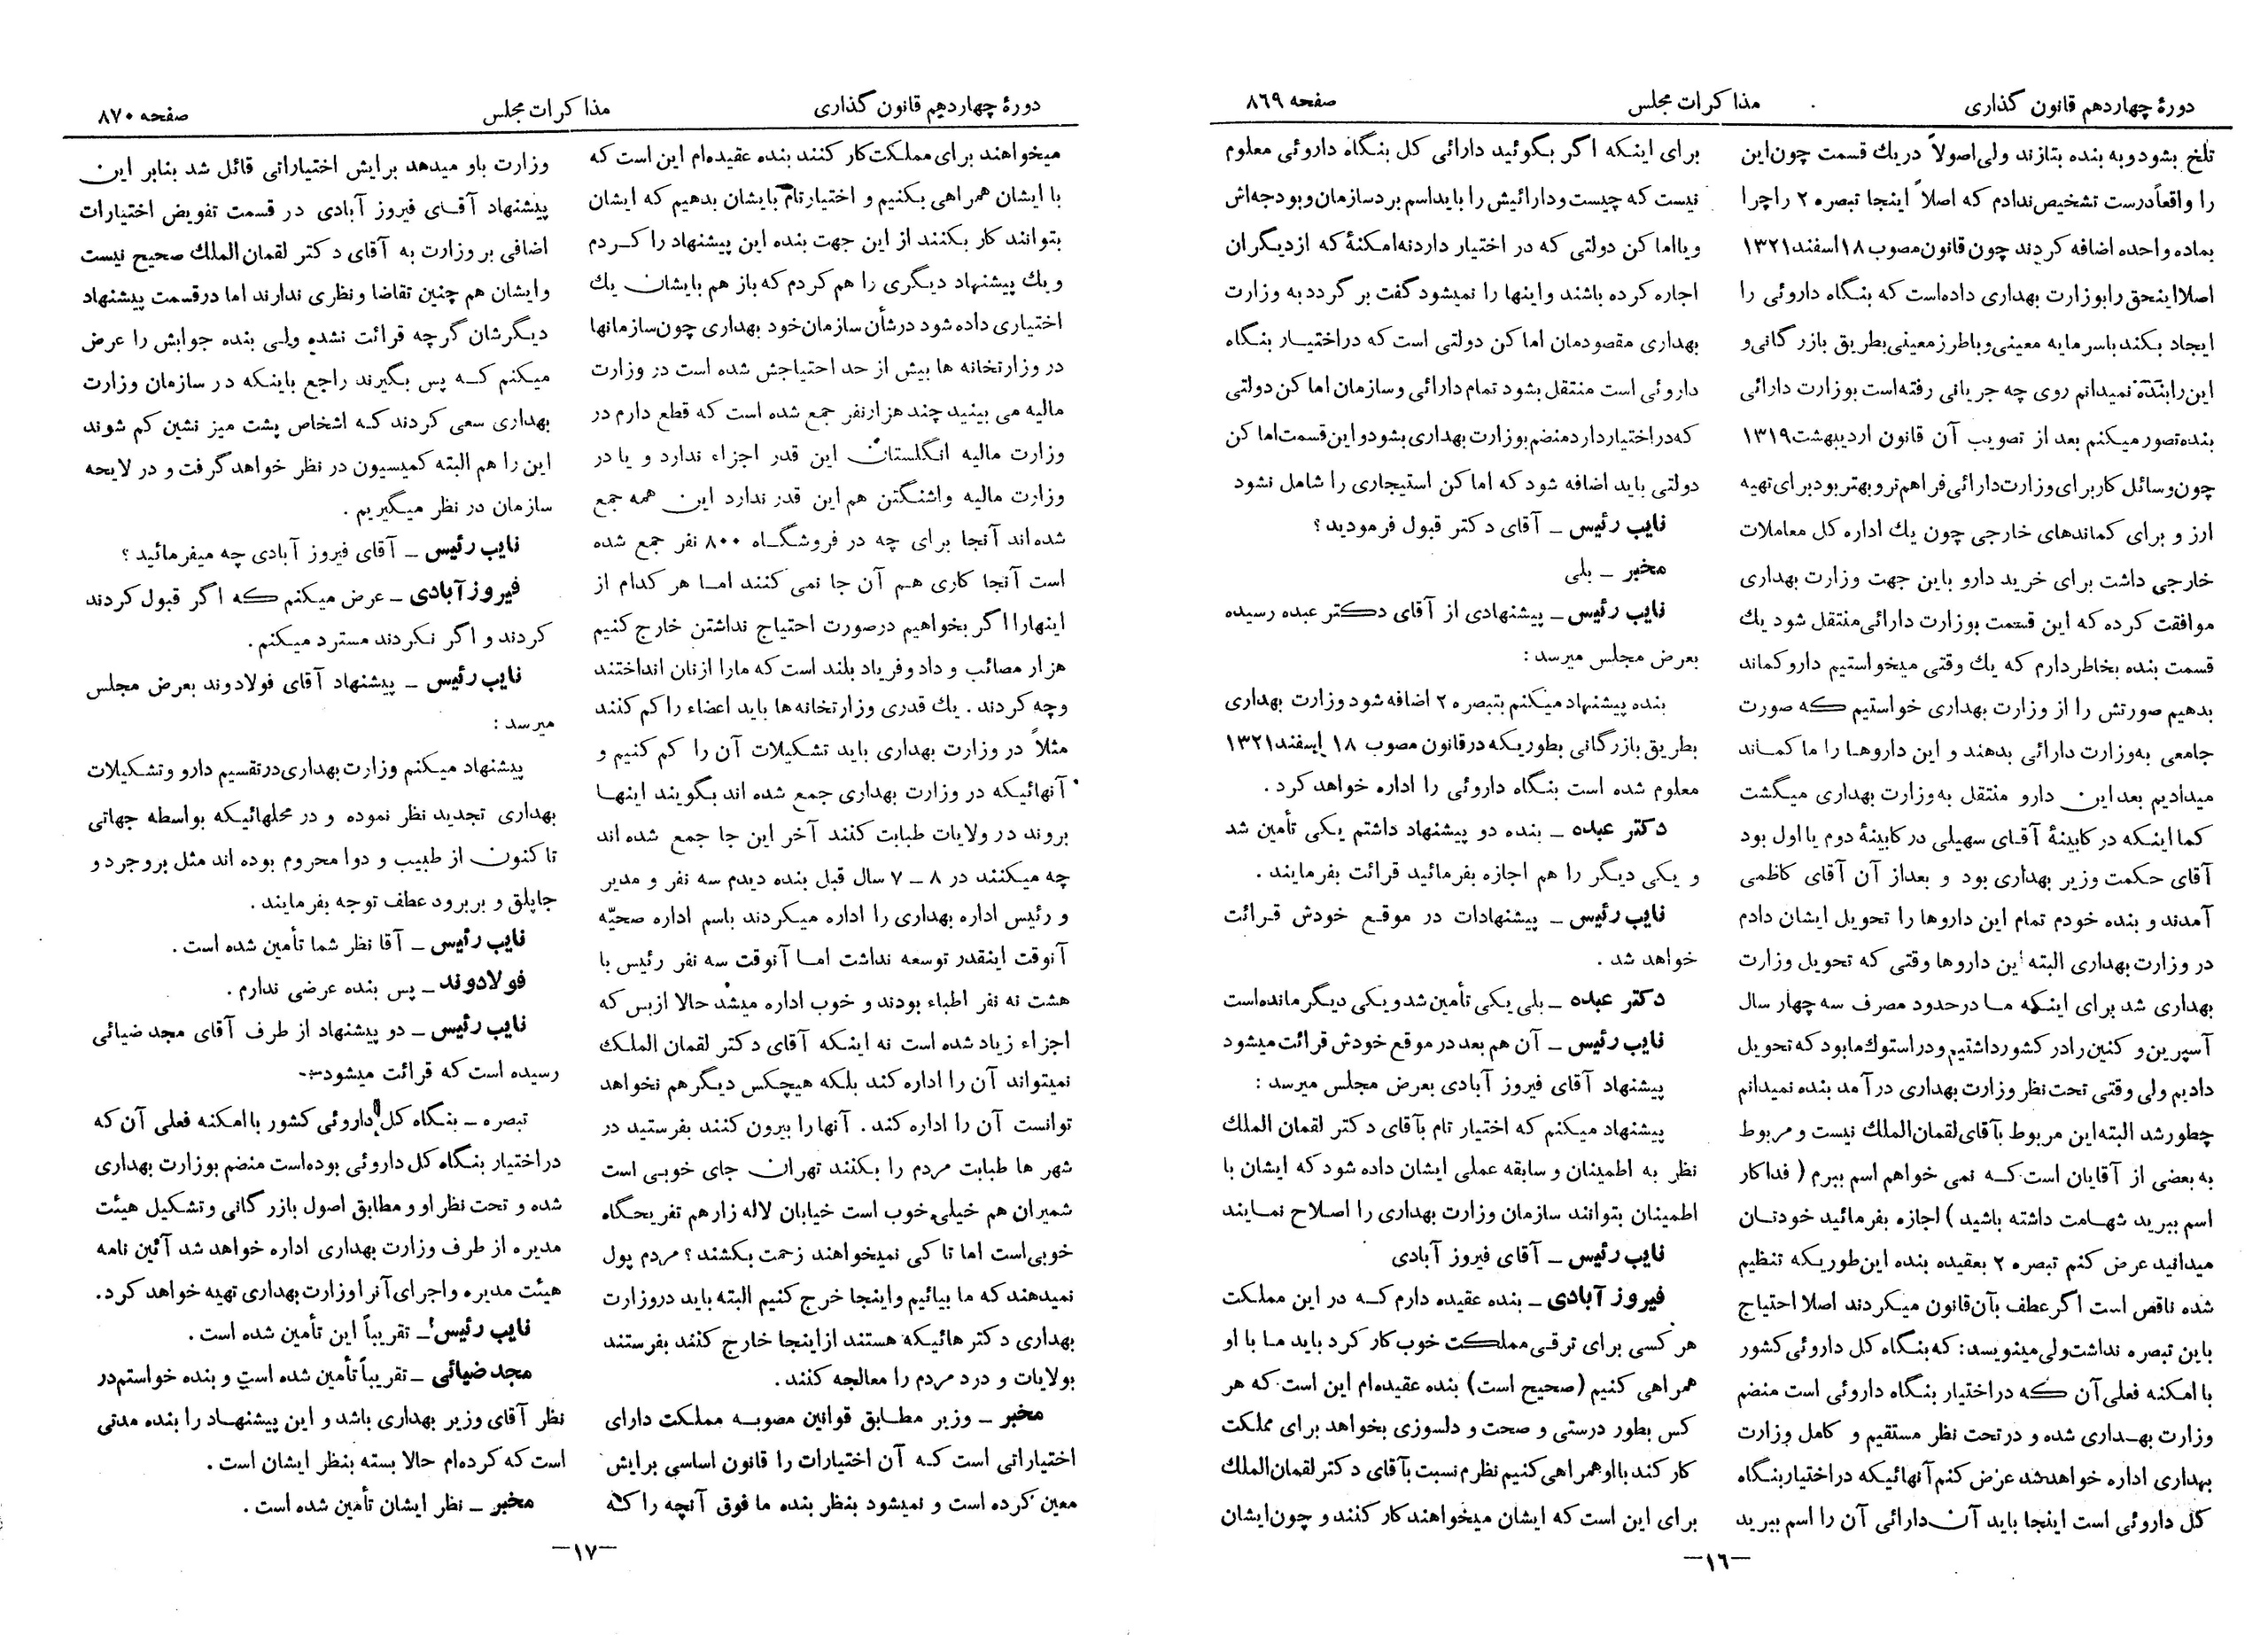 دورهٔ چهاردهم قانون گذاری
مذاکرات مجلس
صفحه ۸۶۹
تلخ بشود و به بنده بتازند ولی اصولاً در یك قسمت چون این
را واقعاً درست تشخیص ندادم که اصلاً اینجا تبصره ۲ را چرا
بماده واحده اضافه کردند چون قانون مصوب ۱۸ اسفند ۱۳۲۱
اصلا اینحق را بوزارت بهداری داده‌است که بنگاه داروئی را
ایجاد بکند باسرمایه معینی و باطرز معینی بطریق بازرگانی و
این را بنده نمیدانم روی چه جریانی رفته‌است بوزارت دارائی
بنده تصور میکنم بعد از تصویب آن قانون اردیبهشت ۱۳۱۹
چون وسائل کار برای وزارت دارائی فراهم‌تر و بهتر بود برای تهیه
ارز و برای کماندهای خارجی چون یك اداره کل معاملات
خارجی داشت برای خرید دارو باین جهت وزارت بهداری
موافقت کرده که این قسمت بوزارت دارائی منتقل شود یك
قسمت بنده بخاطر دارم که یك وقتی میخواستیم دارو کماند
بدهیم صورتش را از وزارت بهداری خواستیم که صورت
جامعی به‌وزارت دارائی بدهند و این داروها را ما کماند
میدادیم بعد این دارو منتقل به‌وزارت بهداری میگشت
کما اینکه در کابینهٔ آقای سهیلی در کابینهٔ دوم یا اول بود
آقای حکمت وزیر بهداری بود و بعداز آن آقای کاظمی
آمدند و بنده خودم تمام این داروها را تحویل ایشان دادم
در وزارت بهداری البته این داروها وقتی که تحویل وزارت
بهداری شد برای اینکه ما درحدود مصرف سه چهار سال
آسپرین و کنین را در کشور داشتیم و در استوك ما بود که تحویل
دادیم ولی وقتی تحت نظر وزارت بهداری در آمد بنده نمیدانم
چطور شد البته این مربوط بآقای لقمان الملك نیست و مربوط
به بعضی از آقایان است که نمی خواهم اسم ببرم ( فداکار
اسم ببرید شهامت داشته باشید ) اجازه بفرمائید خودتان
میدانید عرض کنم تبصره ۲ بعقیده بنده این‌طوریکه تنظیم
شده ناقص است اگر عطف بآن قانون میکردند اصلا احتیاج
باین تبصره نداشت ولی مینویسد : که بنگاه کل داروئی کشور
با امکنه فعلی آن که در اختیار بنگاه داروئی است منضم
وزارت بهداری شده و درتحت نظر مستقیم و کامل وزارت
بهداری اداره خواهد شد عرض کنم آنهائیکه در اختیار بنگاه
کل داروئی است اینجا باید آن دارائی آن را اسم ببرید
برای اینکه اگر بگوئید دارائی کل بنگاه داروئی معلوم
نیست که چیست و دارائیش را باید اسم برد سازمان و بودجه‌اش
و یا اماکن دولتی که در اختیار دارد نه امکنهٔ که از دیگران
اجاره کرده باشند و اینها را نمیشود گفت بر گردد به وزارت
بهداری مقصودمان اماکن دولتی است که در اختیار بنگاه
داروئی است منتقل بشود تمام دارائی و سازمان اماکن دولتی
که در اختیار دارد منضم بوزارت بهداری بشود و این قسمت اماکن
دولتی باید اضافه شود که اماکن استیجاری را شامل نشود
نایب رئیس ــ آقای دکتر قبول فرمودید ؟
مخبر ــ بلی
نایب رئیس ــ پیشنهادی از آقای دکتر عبده رسیده
بعرض مجلس میرسد :
بنده پیشنهاد میکنم بتبصره ۲ اضافه شود وزارت بهداری
بطریق بازرگانی بطوریکه در قانون مصوب ۱۸ اسفند ۱۳۲۱
معلوم شده است بنگاه داروئی را اداره خواهد کرد .
دکتر عبده ــ بنده دو پیشنهاد داشتم یکی تأمین شد
و یکی دیگر را هم اجازه بفرمائید قرائت بفرمایند .
نایب رئیس ــ پیشنهادات در موقع خودش قرائت
خواهد شد .
دکتر عبده ــ بلی یکی تأمین شد و یکی دیگر مانده‌است
نایب رئیس ــ آن هم بعد در موقع خودش قرائت میشود
پیشنهاد آقای فیروز آبادی بعرض مجلس میرسد :
پیشنهاد میکنم که اختیار تام بآقای دکتر لقمان الملك
نظر به اطمینان و سابقه عملی ایشان داده شود که ایشان با
اطمینان بتوانند سازمان وزارت بهداری را اصلاح نمایند
نایب رئیس ــ آقای فیروز آبادی
فیروز آبادی ــ بنده عقیده دارم که در این مملکت
هر کسی برای ترقی مملکت خوب کار کرد باید ما با او
همراهی کنیم (صحیح است) بنده عقیده‌ام این است که هر
کس بطور درستی و صحت و دلسوزی بخواهد برای مملکت
کار کند با او همراهی کنیم نظرم نسبت بآقای دکتر لقمان الملك
برای این است که ایشان میخواهند کار کنند و چون ایشان
ــ۱٦ــ
دورهٔ چهاردهم قانون گذاری
مذاکرات مجلس
صفحه ۸۷۰
میخواهند برای مملکت کار کنند بنده عقیده‌ام این است که
با ایشان همراهی بکنیم و اختیار تام بایشان بدهیم که ایشان
بتوانند کار بکنند از این جهت بنده این پیشنهاد را کردم
و یك پیشنهاد دیگری را هم کردم که باز هم بایشان یك
اختیاری داده شود درشأن سازمان خود بهداری چون سازمانها
در وزارتخانه ها بیش از حد احتیاجش شده است در وزارت
مالیه می بینید چند هزار نفر جمع شده است که قطع دارم در
وزارت مالیه انگلستان این قدر اجزاء ندارد و یا در
وزارت مالیه واشنگتن هم این قدر ندارد این همه جمع
شده‌اند آنجا برای چه در فروشگاه ۸۰۰ نفر جمع شده
است آنجا کاری هم آن جا نمی کنند اما هر کدام از
اینهارا اگر بخواهیم درصورت احتیاج نداشتن خارج کنیم
هزار مصائب و داد و فریاد بلند است که مارا ازنان انداختند
وچه کردند . یك قدری وزارتخانه‌ها باید اعضاء را کم کنند
مثلاً در وزارت بهداری باید تشکیلات آن را کم کنیم و
آنهائیکه در وزارت بهداری جمع شده اند بگویند اینها
بروند در ولایات طبابت کنند آخر این جا جمع شده اند
چه میکنند در ۸ ــ ۷ سال قبل بنده دیدم سه نفر و مدیر
و رئیس اداره بهداری را اداره میکردند باسم اداره صحیّه
آنوقت اینقدر توسعه نداشت اما آنوقت سه نفر رئیس با
هشت نه نفر اطباء بودند و خوب اداره میشد حالا ازبس که
اجزاء زیاد شده است نه اینکه آقای دکتر لقمان الملك
نمیتواند آن را اداره کند بلکه هیچکس دیگر هم نخواهد
توانست آن را اداره کند . آنها را بیرون کنند بفرستید در
شهر ها طبابت مردم را بکنند تهران جای خوبی است
شمیران هم خیلی خوب است خیابان لاله زار هم تفریحگاه
خوبی‌است اما تا کی نمیخواهند زحمت بکشند ؟ مردم پول
نمیدهند که ما بیائیم و اینجا خرج کنیم البته باید دروزارت
بهداری دکتر هائیکه هستند ازاینجا خارج کنند بفرستند
بولایات و درد مردم را معالجه کنند .
مخبر ــ وزیر مطابق قوانین مصوبه مملکت دارای
اختیاراتی است که آن اختیارات را قانون اساسی برایش
معین کرده است و نمیشود بنظر بنده ما فوق آنچه را که
وزارت باو میدهد برایش اختیاراتی قائل شد بنابر این
پیشنهاد آقای فیروز آبادی در قسمت تفویض اختیارات
اضافی بر وزارت به آقای دکتر لقمان الملك صحیح نیست
وایشان هم چنین تقاضا و نظری ندارند اما درقسمت پیشنهاد
دیگرشان گرچه قرائت نشده ولی بنده جوابش را عرض
میکنم که پس بگیرند راجع باینکه در سازمان وزارت
بهداری سعی کردند که اشخاص پشت میز نشین کم شوند
این را هم البته کمیسیون در نظر خواهد گرفت و در لایحه
سازمان در نظر میگیریم .
نایب رئیس ــ آقای فیروز آبادی چه میفرمائید ؟
فیروز آبادی ــ عرض میکنم که اگر قبول کردند
کردند و اگر نکردند مسترد میکنم .
نایب رئیس ــ پیشنهاد آقای فولادوند بعرض مجلس
میرسد :
پیشنهاد میکنم وزارت بهداری در تقسیم دارو و تشکیلات
بهداری تجدید نظر نموده و در محلهائیکه بواسطه جهاتی
تاکنون از طبیب و دوا محروم بوده اند مثل بروجرد و
جاپلق و بربرود عطف توجه بفرمایند .
نایب رئیس ــ آقا نظر شما تأمین شده است .
فولادوند ــ پس بنده عرضی ندارم .
نایب رئیس ــ دو پیشنهاد از طرف آقای مجد ضیائی
رسیده است که قرائت میشود :-
تبصره ــ بنگاه کل داروئی کشور با امکنه فعلی آن که
در اختیار بنگاه کل داروئی بوده‌است منضم بوزارت بهداری
شده و تحت نظر او و مطابق اصول بازرگانی و تشکیل هیئت
مدیره از طرف وزارت بهداری اداره خواهد شد آئین نامه
هیئت مدیره و اجرای آنرا وزارت بهداری تهیه خواهد کرد .
نایب رئیس ــ تقریباً این تأمین شده است .
مجد ضیائی ــ تقریباً تأمین شده است و بنده خواستم در
نظر آقای وزیر بهداری باشد و این پیشنهاد را بنده مدتی
است که کرده‌ام حالا بسته بنظر ایشان است .
مخبر ــ نظر ایشان تأمین شده است .
ــ۱۷ــ